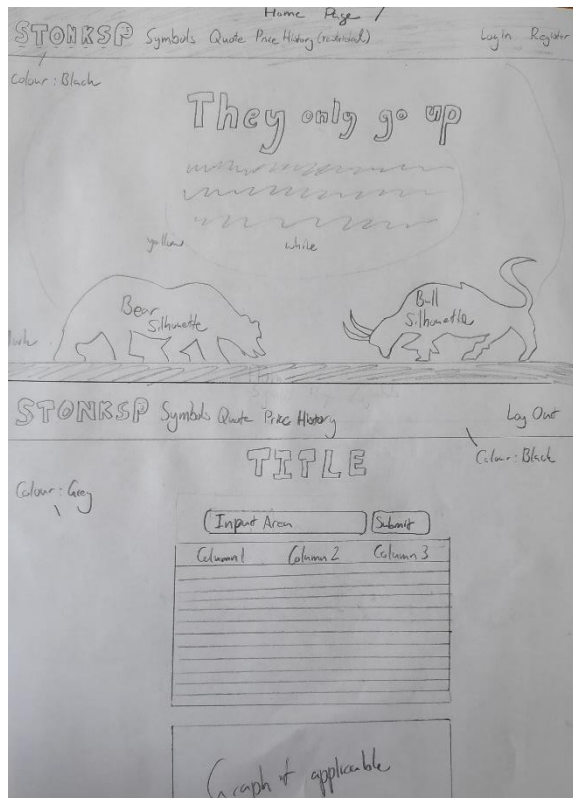 Home Page
STONKSP Symbols Quote Price History (restricted) Log In Register
Colour: Black
They only go up
yellow white
Bear
Silhouette
Bull
Silhouette
STONKSP Symbols Quote Price History Log Out
Colour: Black
TITLE
Colour: Grey
Input Area Submit
Column 1 Column 2 Column 3
Graph if applicable